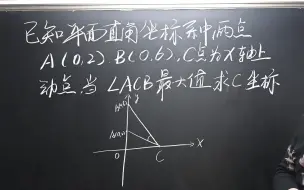 已知平面直角坐标系中两点
A(0,2).B(0,6),C点为X轴上
动点,当∠ACB最大值求C坐标
y
O
C
X